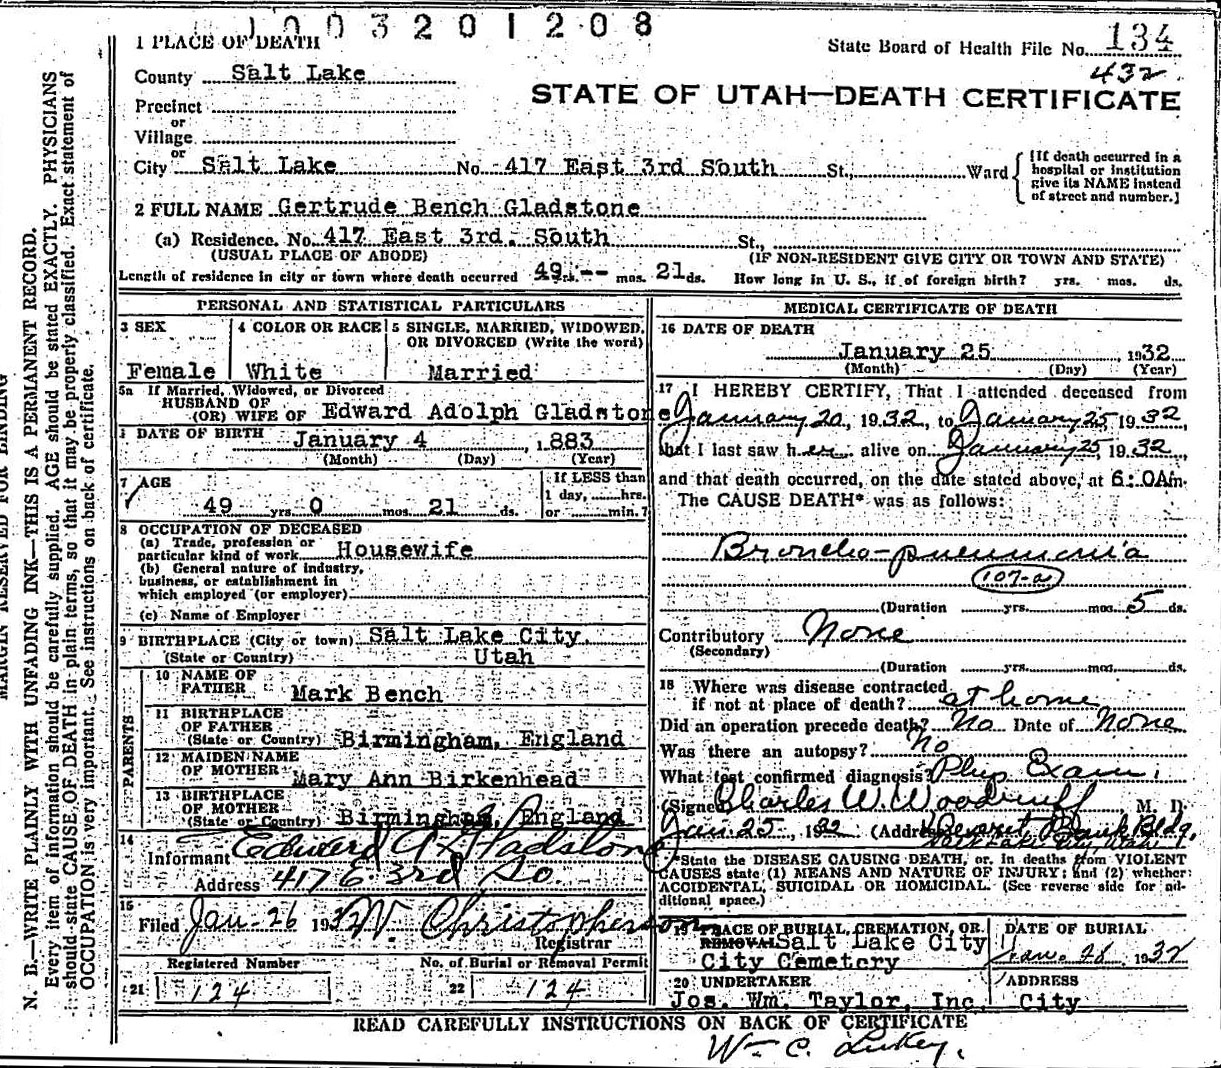 1003201208
State Board of Health File No. 134
432
1 PLACE OF DEATH
County Salt Lake
STATE OF UTAH—DEATH CERTIFICATE
Precinct
or
Village
or
City Salt Lake No. 417 East 3rd South St., Ward
[If death occurred in a hospital or institution give its NAME instead of street and number.]
2 FULL NAME Gertrude Bench Gladstone
(a) Residence. No. 417 East 3rd. South St.,
(USUAL PLACE OF ABODE) (IF NON-RESIDENT GIVE CITY OR TOWN AND STATE)
Length of residence in city or town where death occurred 49 yrs. -- mos. 21 ds. How long in U. S., if of foreign birth? yrs. mos. ds.
PERSONAL AND STATISTICAL PARTICULARS
3 SEX
Female
4 COLOR OR RACE
White
5 SINGLE, MARRIED, WIDOWED, OR DIVORCED (Write the word)
Married
5a If Married, Widowed, or Divorced
HUSBAND OF
(OR) WIFE OF Edward Adolph Gladstone
DATE OF BIRTH January 4, 1883
(Month) (Day) (Year)
7 AGE
49 yrs. 0 mos. 21 ds.
If LESS than
1 day, hrs.
or min.?
8 OCCUPATION OF DECEASED
(a) Trade, profession or
particular kind of work Housewife
(b) General nature of industry,
business, or establishment in
which employed (or employer)
(c) Name of Employer
9 BIRTHPLACE (City or town) Salt Lake City,
(State or Country) Utah
PARENTS
10 NAME OF
FATHER Mark Bench
11 BIRTHPLACE
OF FATHER
(State or Country) Birmingham, England
12 MAIDEN NAME
OF MOTHER Mary Ann Birkenhead
13 BIRTHPLACE
OF MOTHER
(State or Country) Birmingham, England
14
Informant Edward A Gladstone
Address 417 E. 3rd So.
15
Filed Jan-26 1932 W. Christopherson
Registrar
Registered Number No. of Burial or Removal Permit
21 124 22 124
MEDICAL CERTIFICATE OF DEATH
16 DATE OF DEATH
January 25 1932
(Month) (Day) (Year)
17 I HEREBY CERTIFY, That I attended deceased from
January 20, 1932, to January 25, 1932,
that I last saw her alive on January 25, 1932,
and that death occurred, on the date stated above, at 6:0Am.
The CAUSE DEATH* was as follows:
Broncho-pneumonia
107-a
(Duration yrs. mos. 5 ds.
Contributory None
(Secondary)
(Duration yrs. mos. ds.
18 Where was disease contracted
if not at place of death? at home
Did an operation precede death? No Date of None
Was there an autopsy? No
What test confirmed diagnosis? Phys Exam.
(Signed) Charles W. Woodruff M. D.
Jan 25, 1932 (Address) Deseret Bank Bldg.
Salt Lake City, Utah
*State the DISEASE CAUSING DEATH, or, in deaths from VIOLENT
CAUSES state (1) MEANS AND NATURE OF INJURY; and (2) whether
ACCIDENTAL, SUICIDAL OR HOMICIDAL. (See reverse side for ad-
ditional space.)
19 PLACE OF BURIAL, CREMATION, OR
REMOVAL Salt Lake City
City Cemetery
DATE OF BURIAL
Jan. 28, 1932
20 UNDERTAKER
Jos. Wm. Taylor, Inc
ADDRESS
City
READ CAREFULLY INSTRUCTIONS ON BACK OF CERTIFICATE
Wm C.
MARGIN RESERVED FOR BINDING
N. B.—WRITE PLAINLY WITH UNFADING INK—THIS IS A PERMANENT RECORD.
Every item of information should be carefully supplied. AGE should be stated EXACTLY. PHYSICIANS
should state CAUSE OF DEATH in plain terms, so that it may be properly classified. Exact statement of
OCCUPATION is very important. See instructions on back of certificate.